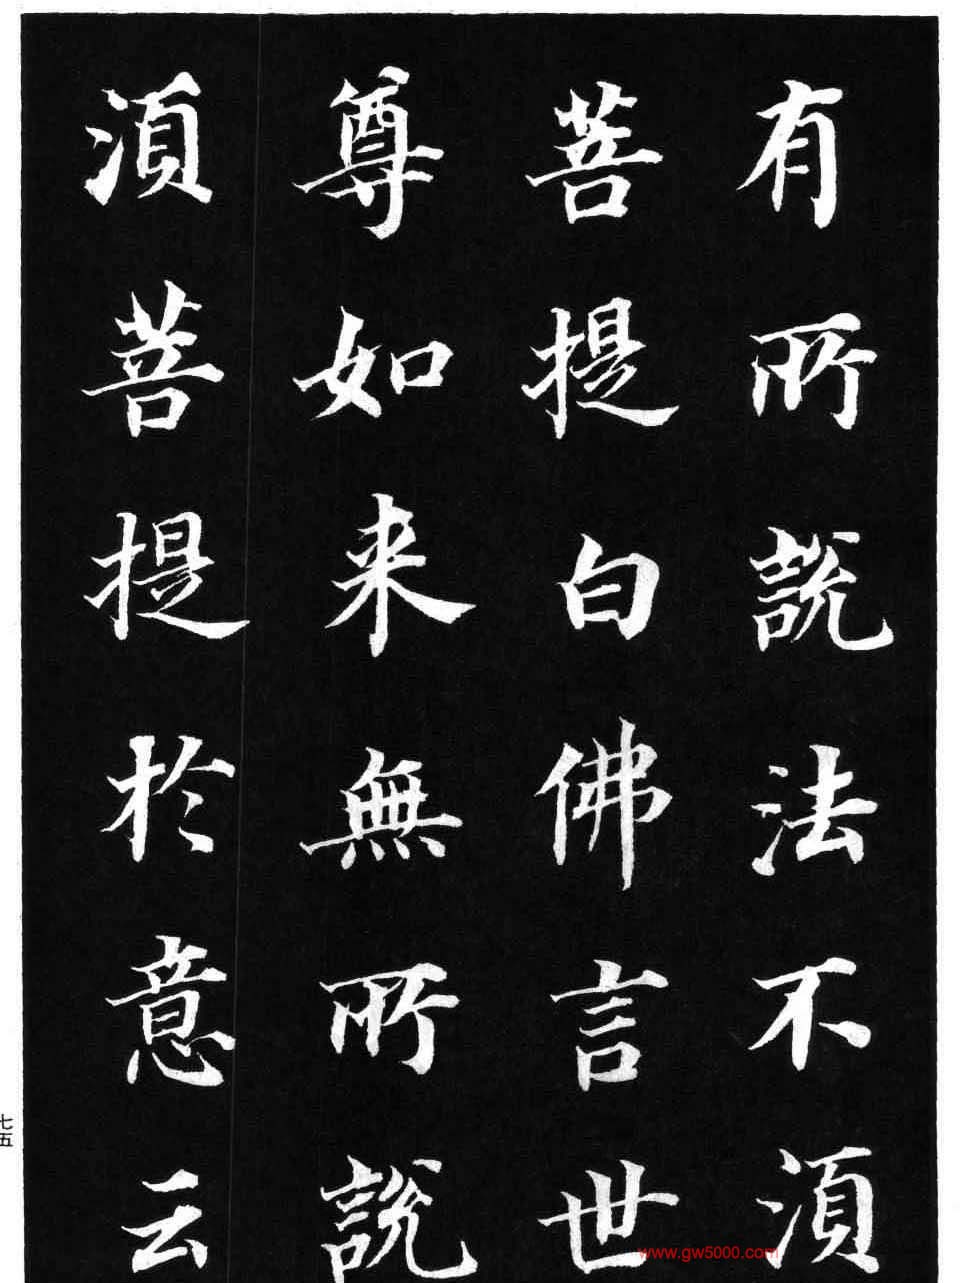 有所說法不湏
菩提白佛言世
尊如来無所說
湏菩提於意云
七五
www.gw5000.com